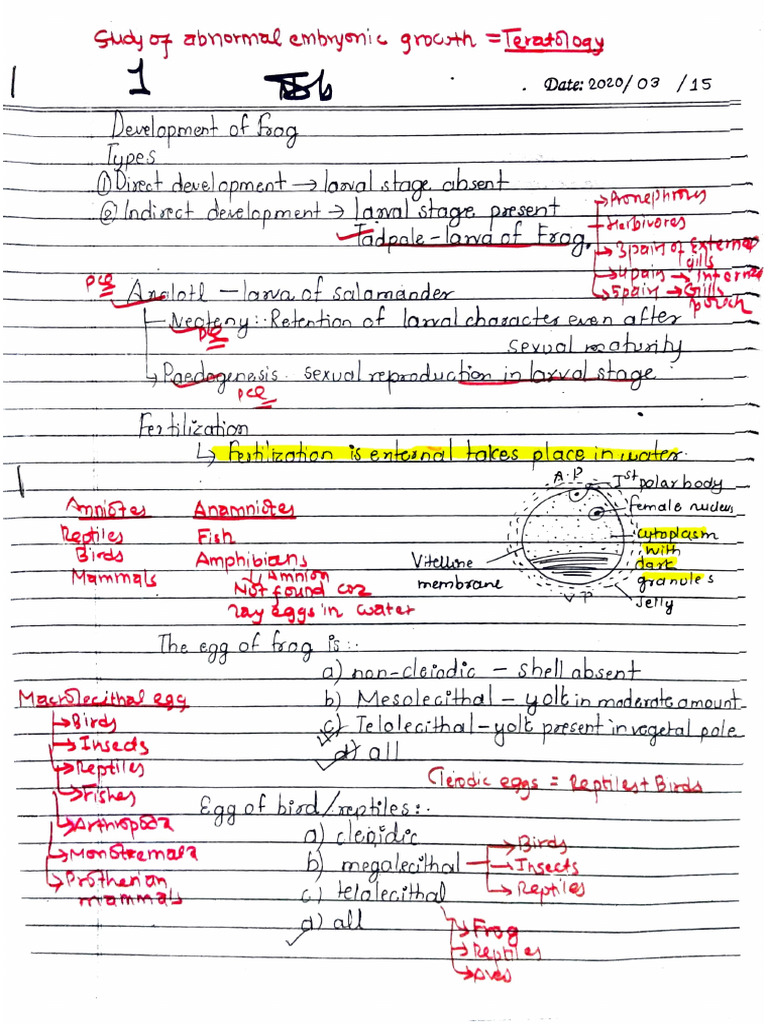 Study of abnormal embryonic growth = Teratology
1
Date: 2020/03/15
Development of Frog
Types
① Direct development → larval stage absent
② Indirect development → larval stage present
Tadpole - larva of Frog.
→ Pronephros
→ Herbivores
→ 3 pair of External gills
→ 4 pair → Internal
→ 5 pair → Gills pouch
Axolotl - larva of salamander
Neoteny :- Retention of larval character even after
sexual maturity
→ Paedogenesis. sexual reproduction in larval stage
Fertilization
↳ Fertilization is external takes place in water.
A.P
Ist polar body
female nucleus
cytoplasm with dark granules
Jelly
V.P
Vitelline membrane
Amniotes Anamniotes
Reptiles Fish
Birds Amphibians
Mammals
↳ Amnion
Not found coz
lay eggs in water
The egg of frog is :-
a) non-cleiodic - shell absent
b) Mesolecithal - yolk in moderate amount
c) Telolecithal - yolk present in vegetal pole
d) all
Macrolecithal egg
→ Birds
→ Insects
→ Reptiles
→ Fishes
→ Arthropoda
→ Monotremata
→ Protherian mammals
Cleiodic eggs = Reptiles + Birds
Egg of bird/reptiles :-
a) cleoidic
b) megalecithal
→ Birds
→ Insects
→ Reptiles
c) telolecithal
→ Frog
→ Reptiles
→ Aves
d) all